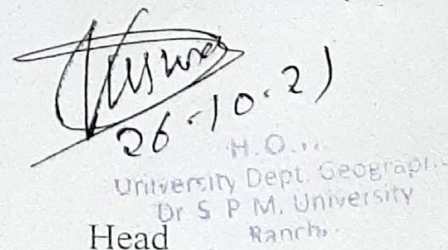 26.10.21
H.O..
University Dept. Geograp..
Dr S P M. University
Ranch.
Head